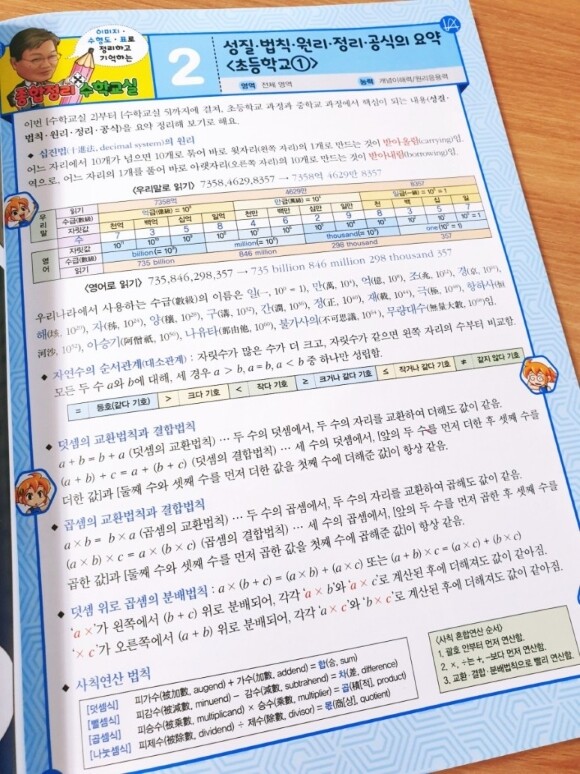 이미지·
수형도·표로
정리하고
기억하는
종합정리 수학교실
2
성질·법칙·원리·정리·공식의 요약
<초등학교①>
영역 전체 영역
능력 개념이해력/원리응용력
이번 [수학교실 2]부터 [수학교실 5]까지에 걸쳐, 초등학교 과정과 중학교 과정에서 핵심이 되는 내용(성질·
법칙·원리·정리·공식)을 요약 정리해 보기로 해요.
◆ 십진법(十進法, decimal system)의 원리
어느 자리에서 10개가 넘으면 10개로 묶어 바로 윗자리(왼쪽 자리)의 1개로 만드는 것이 받아올림(carrying)임.
역으로, 어느 자리의 1개를 풀어 바로 아랫자리(오른쪽 자리)의 10개로 만드는 것이 받아내림(borrowing)임.
<우리말로 읽기> 7358,4629,8357 → 7358억 4629만 8357
우리말
읽기 7358억 4629만 8357
수급(數級) 억급(億級) = 10⁸ 만급(萬級) = 10⁴ 일급(一級) = 10⁰ = 1
자릿값 천억 백억 십억 일억 천만 백만 십만 일만 천 백 십 일
수 7 3 5 8 4 6 2 9 8 3 5 7
영어
자릿값 10¹¹ 10¹⁰ 10⁹ 10⁸ 10⁷ 10⁶ 10⁵ 10⁴ 10³ 10² 10¹ 10⁰ = 1
수급(數級) billion(= 10⁹) million(= 10⁶) thousand(= 10³) one(10⁰ = 1)
읽기 735 billion 846 million 298 thousand 357
<영어로 읽기> 735,846,298,357 → 735 billion 846 million 298 thousand 357
우리나라에서 사용하는 수급(數級)의 이름은 일(一, 10⁰ = 1), 만(萬, 10⁴), 억(億, 10⁸), 조(兆, 10¹²), 경(京, 10¹⁶),
해(垓, 10²⁰), 자(秭, 10²⁴), 양(穰, 10²⁸), 구(溝, 10³²), 간(澗, 10³⁶), 정(正, 10⁴⁰), 재(載, 10⁴⁴), 극(極, 10⁴⁸), 항하사(恒
河沙, 10⁵²), 아승기(阿僧祇, 10⁵⁶), 나유타(那由他, 10⁶⁰), 불가사의(不可思議, 10⁶⁴), 무량대수(無量大數, 10⁶⁸)임.
◆ 자연수의 순서관계(대소관계) : 자릿수가 많은 수가 더 크고, 자릿수가 같으면 왼쪽 자리의 수부터 비교함.
모든 두 수 a와 b에 대해, 세 경우 a > b, a = b, a < b 중 하나만 성립함.
= 등호(같다 기호) > 크다 기호 < 작다 기호 ≥ 크거나 같다 기호 ≤ 작거나 같다 기호 ≠ 같지 않다 기호
◆ 덧셈의 교환법칙과 결합법칙
a + b = b + a (덧셈의 교환법칙) … 두 수의 덧셈에서, 두 수의 자리를 교환하여 더해도 값이 같음.
(a + b) + c = a + (b + c) (덧셈의 결합법칙) … 세 수의 덧셈에서, [앞의 두 수를 먼저 더한 후 셋째 수를
더한 값]과 [둘째 수와 셋째 수를 먼저 더한 값을 첫째 수에 더해준 값]이 항상 같음.
◆ 곱셈의 교환법칙과 결합법칙
a × b = b × a (곱셈의 교환법칙) … 두 수의 곱셈에서, 두 수의 자리를 교환하여 곱해도 값이 같음.
(a × b) × c = a × (b × c) (곱셈의 결합법칙) … 세 수의 곱셈에서, [앞의 두 수를 먼저 곱한 후 셋째 수를
곱한 값]과 [둘째 수와 셋째 수를 먼저 곱한 값을 첫째 수에 곱해준 값]이 항상 같음.
◆ 덧셈 위로 곱셈의 분배법칙 : a × (b + c) = (a × b) + (a × c) 또는 (a + b) × c = (a × c) + (b × c)
'a ×'가 왼쪽에서 (b + c) 위로 분배되어, 각각 'a × b'와 'a × c'로 계산된 후에 더해져도 값이 같아짐.
'× c'가 오른쪽에서 (a + b) 위로 분배되어, 각각 'a × c'와 'b × c'로 계산된 후에 더해져도 값이 같아짐.
◆ 사칙연산 법칙
[덧셈식] 피가수(被加數, augend) + 가수(加數, addend) = 합(合, sum)
[뺄셈식] 피감수(被減數, minuend) - 감수(減數, subtrahend) = 차(差, difference)
[곱셈식] 피승수(被乘數, multiplicand) × 승수(乘數, multiplier) = 곱(積[적], product)
[나눗셈식] 피제수(被除數, dividend) ÷ 제수(除數, divisor) = 몫(商[상], quotient)
<사칙 혼합연산 순서>
1. 괄호 안부터 먼저 연산함.
2. ×, ÷는 +, -보다 먼저 연산함.
3. 교환·결합·분배법칙으로 빨리 연산함.